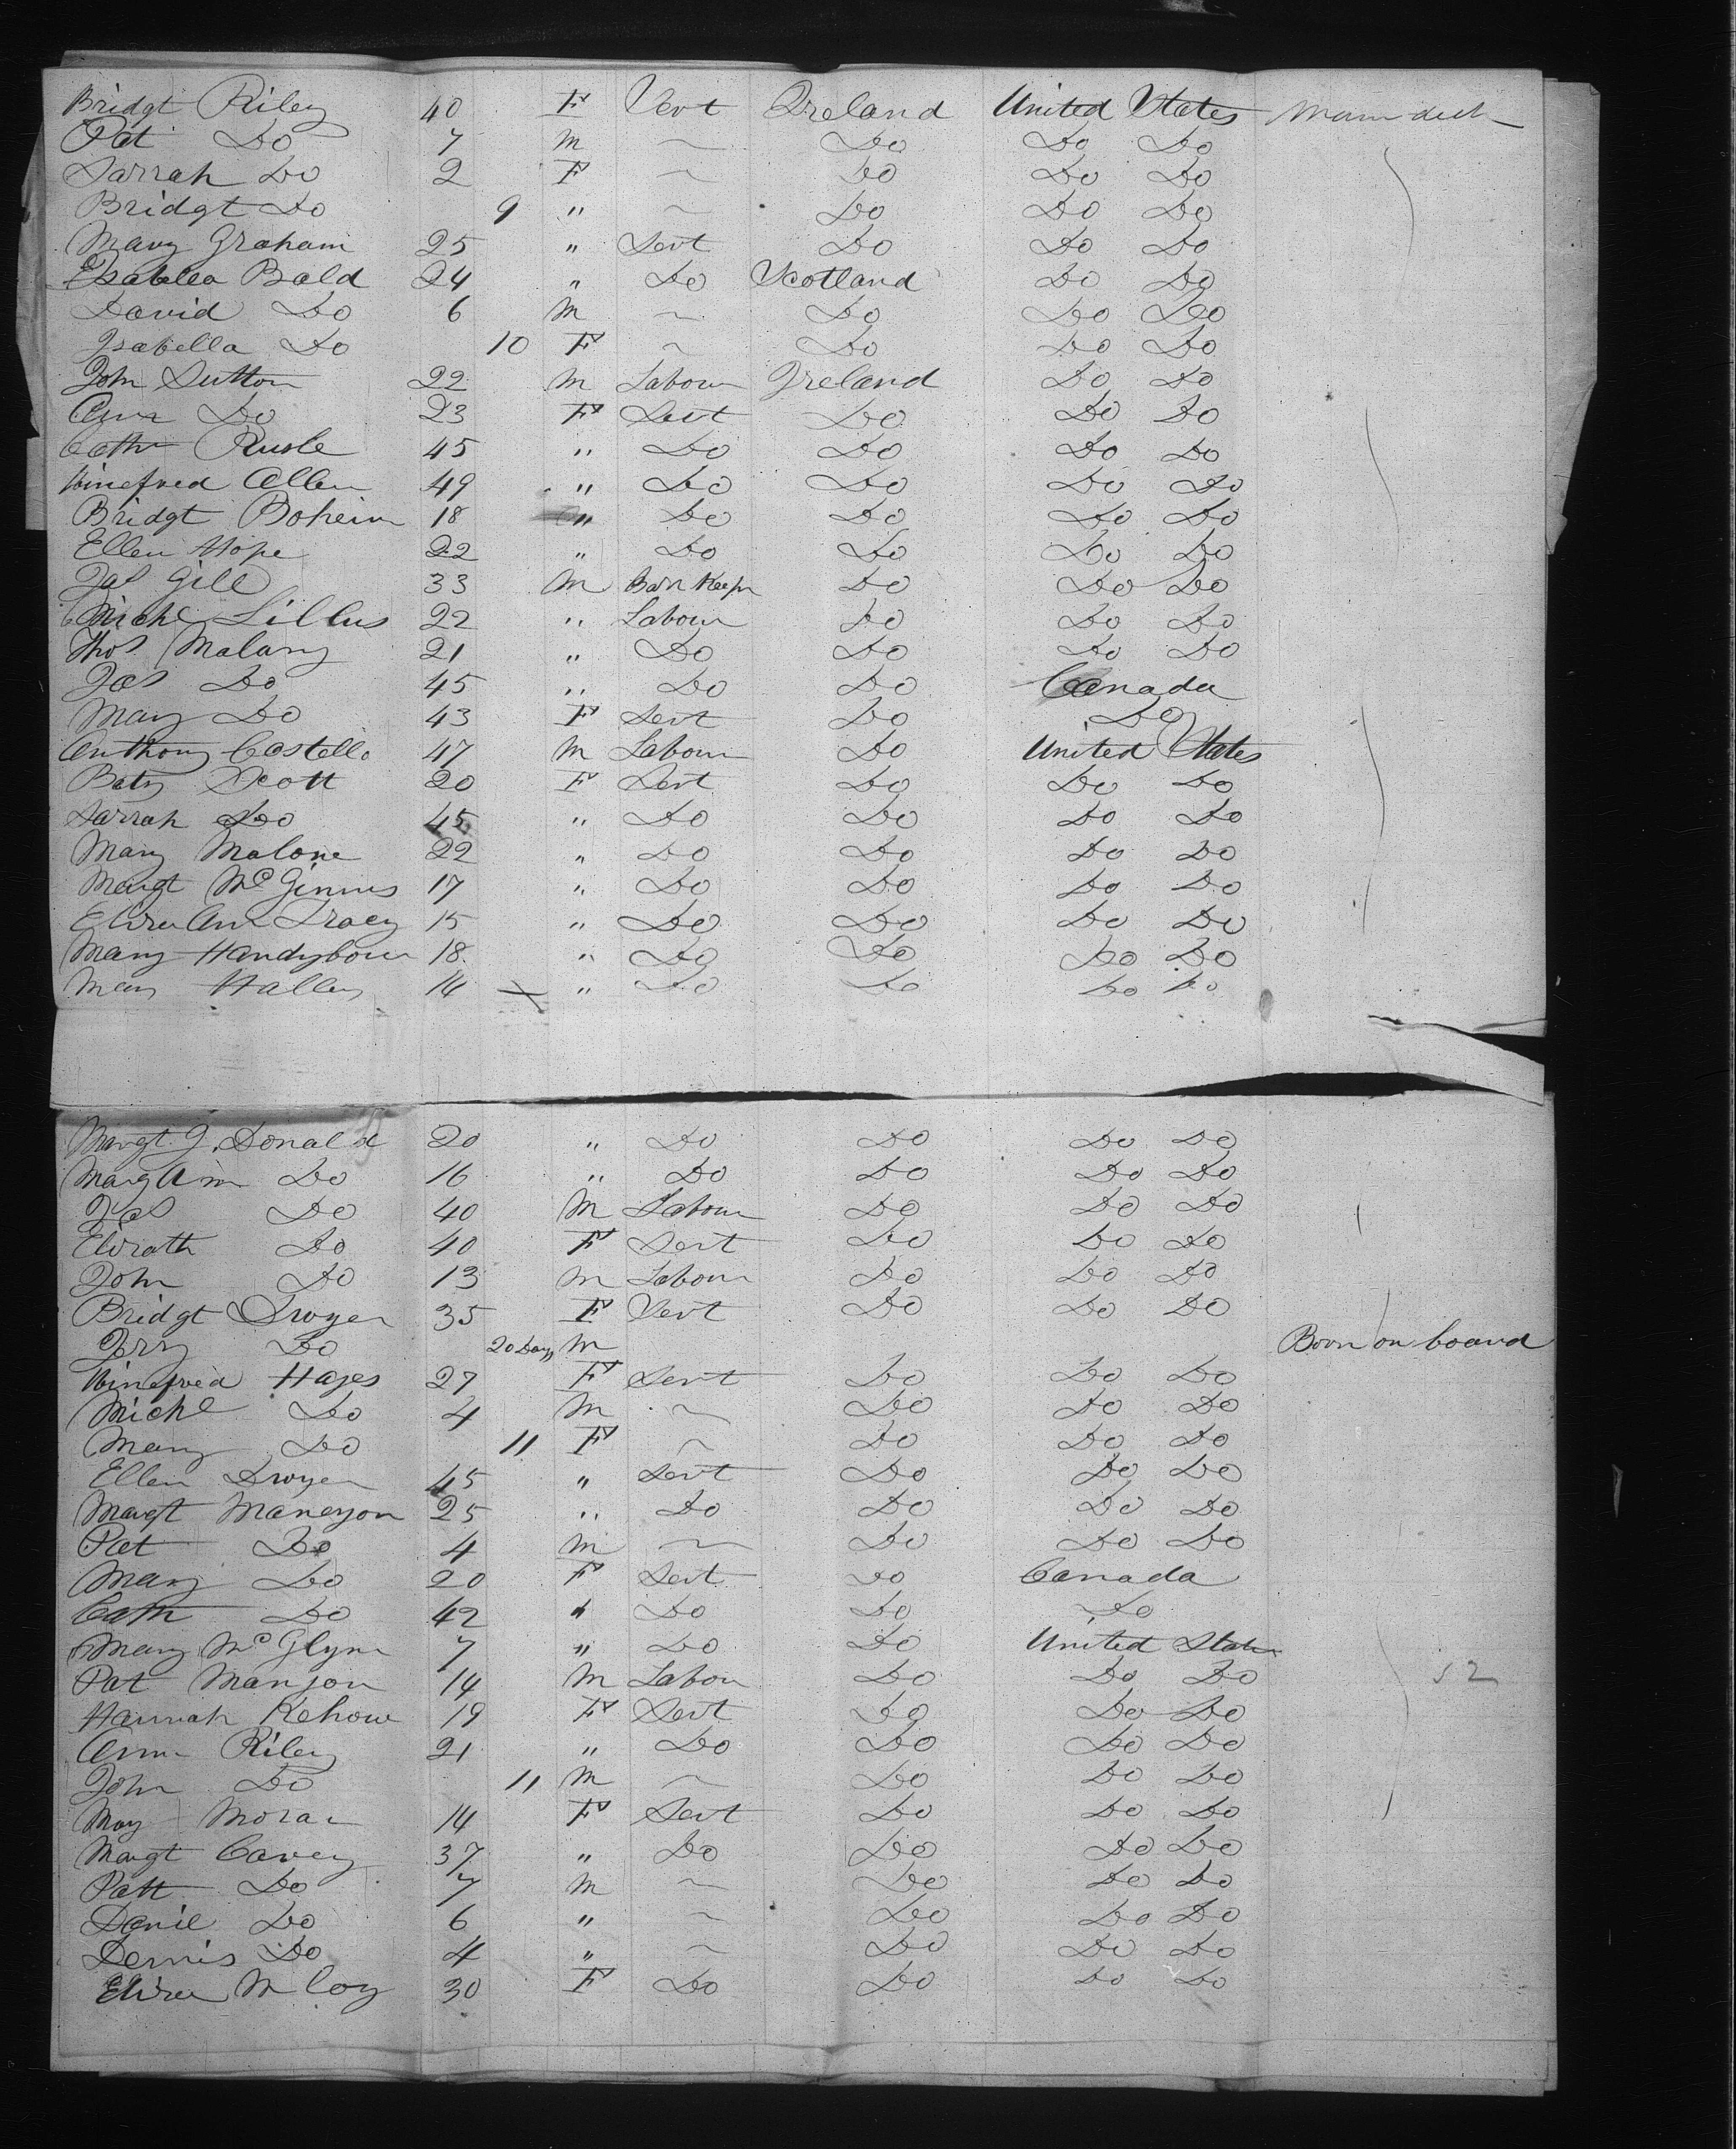 Bridgt Riley 40 F Sevt Ireland United States Main deck
Pat Do 7 m ~ Do Do Do
Sarrah Do 2 F ~ Do Do Do
Bridgt Do 9 " ~ Do Do Do
Mary Graham 25 " Sevt Do Do Do
Isabella Bald 24 " Do Scotland Do Do
David Do 6 m ~ Do Do Do
Isabella Do 10 F ~ Do Do Do
John Sutton 22 m Labour Ireland Do Do
Ann Do 23 F Sevt Do Do Do
Cath 45 " Do Do Do Do
Winefred Allen 49 " Do Do Do Do
Bridgt Boheim 18 " Do Do Do Do
Ellen Hope 22 " Do Do Do Do
Jas Gill 33 m Bar Keepr Do Do Do
Michl Lillus 22 " Labour Do Do Do
Thos Malany 21 " Do Do Do Do
Jas Do 45 " Do Do Canada
Mary Do 43 F Sevt Do Do
Anthony Costello 47 m Labour Do United States
Betsy Scott 20 F Sevt Do Do Do
Sarrah Do 45 " Do Do Do Do
Mary Malone 22 " Do Do Do Do
Margt McGinnis 17 " Do Do Do Do
Eliza Ann Tracy 15 " Do Do Do Do
Mary Handyboun 18 " Do Do Do Do
Mary Halley 14 " Do Do Do Do
Margt J. Donald 20 " Do Do Do Do
Mary Ann Do 16 " Do Do Do Do
Jas Do 40 m Labour Do Do Do
Elizath Do 40 F Sevt Do Do Do
John Do 13 m Labour Do Do Do
Bridgt Dwyer 35 F Sevt Do Do Do
Jerry Do 20 Days m Born on board
Winefred Hayes 27 F Sevt Do Do Do
Michl Do 4 m ~ Do Do Do
Mary Do 11 F ~ Do Do Do
Ellen Dwyer 45 " Sevt Do Do Do
Margt Maneyon 25 " Do Do Do Do
Pat Do 4 m ~ Do Do Do
Mary Do 20 F Sevt Do Canada
Cath Do 42 " Do Do Do
Mary McGlynn 7 " Do Do United States
Pat Manyon 14 m Labou Do Do Do 52
Hannah Kehow 19 F Sevt Do Do Do
Ann Riley 21 " Do Do Do Do
John Do 11 m ~ Do Do Do
May Moran 14 F Sevt Do Do Do
Margt Cavey 37 " Do Do Do Do
Patt Do 7 m ~ Do Do Do
Danil Do 6 " ~ Do Do Do
Dennis Do 4 " ~ Do Do Do
Eliza McCoy 30 F Do Do Do Do